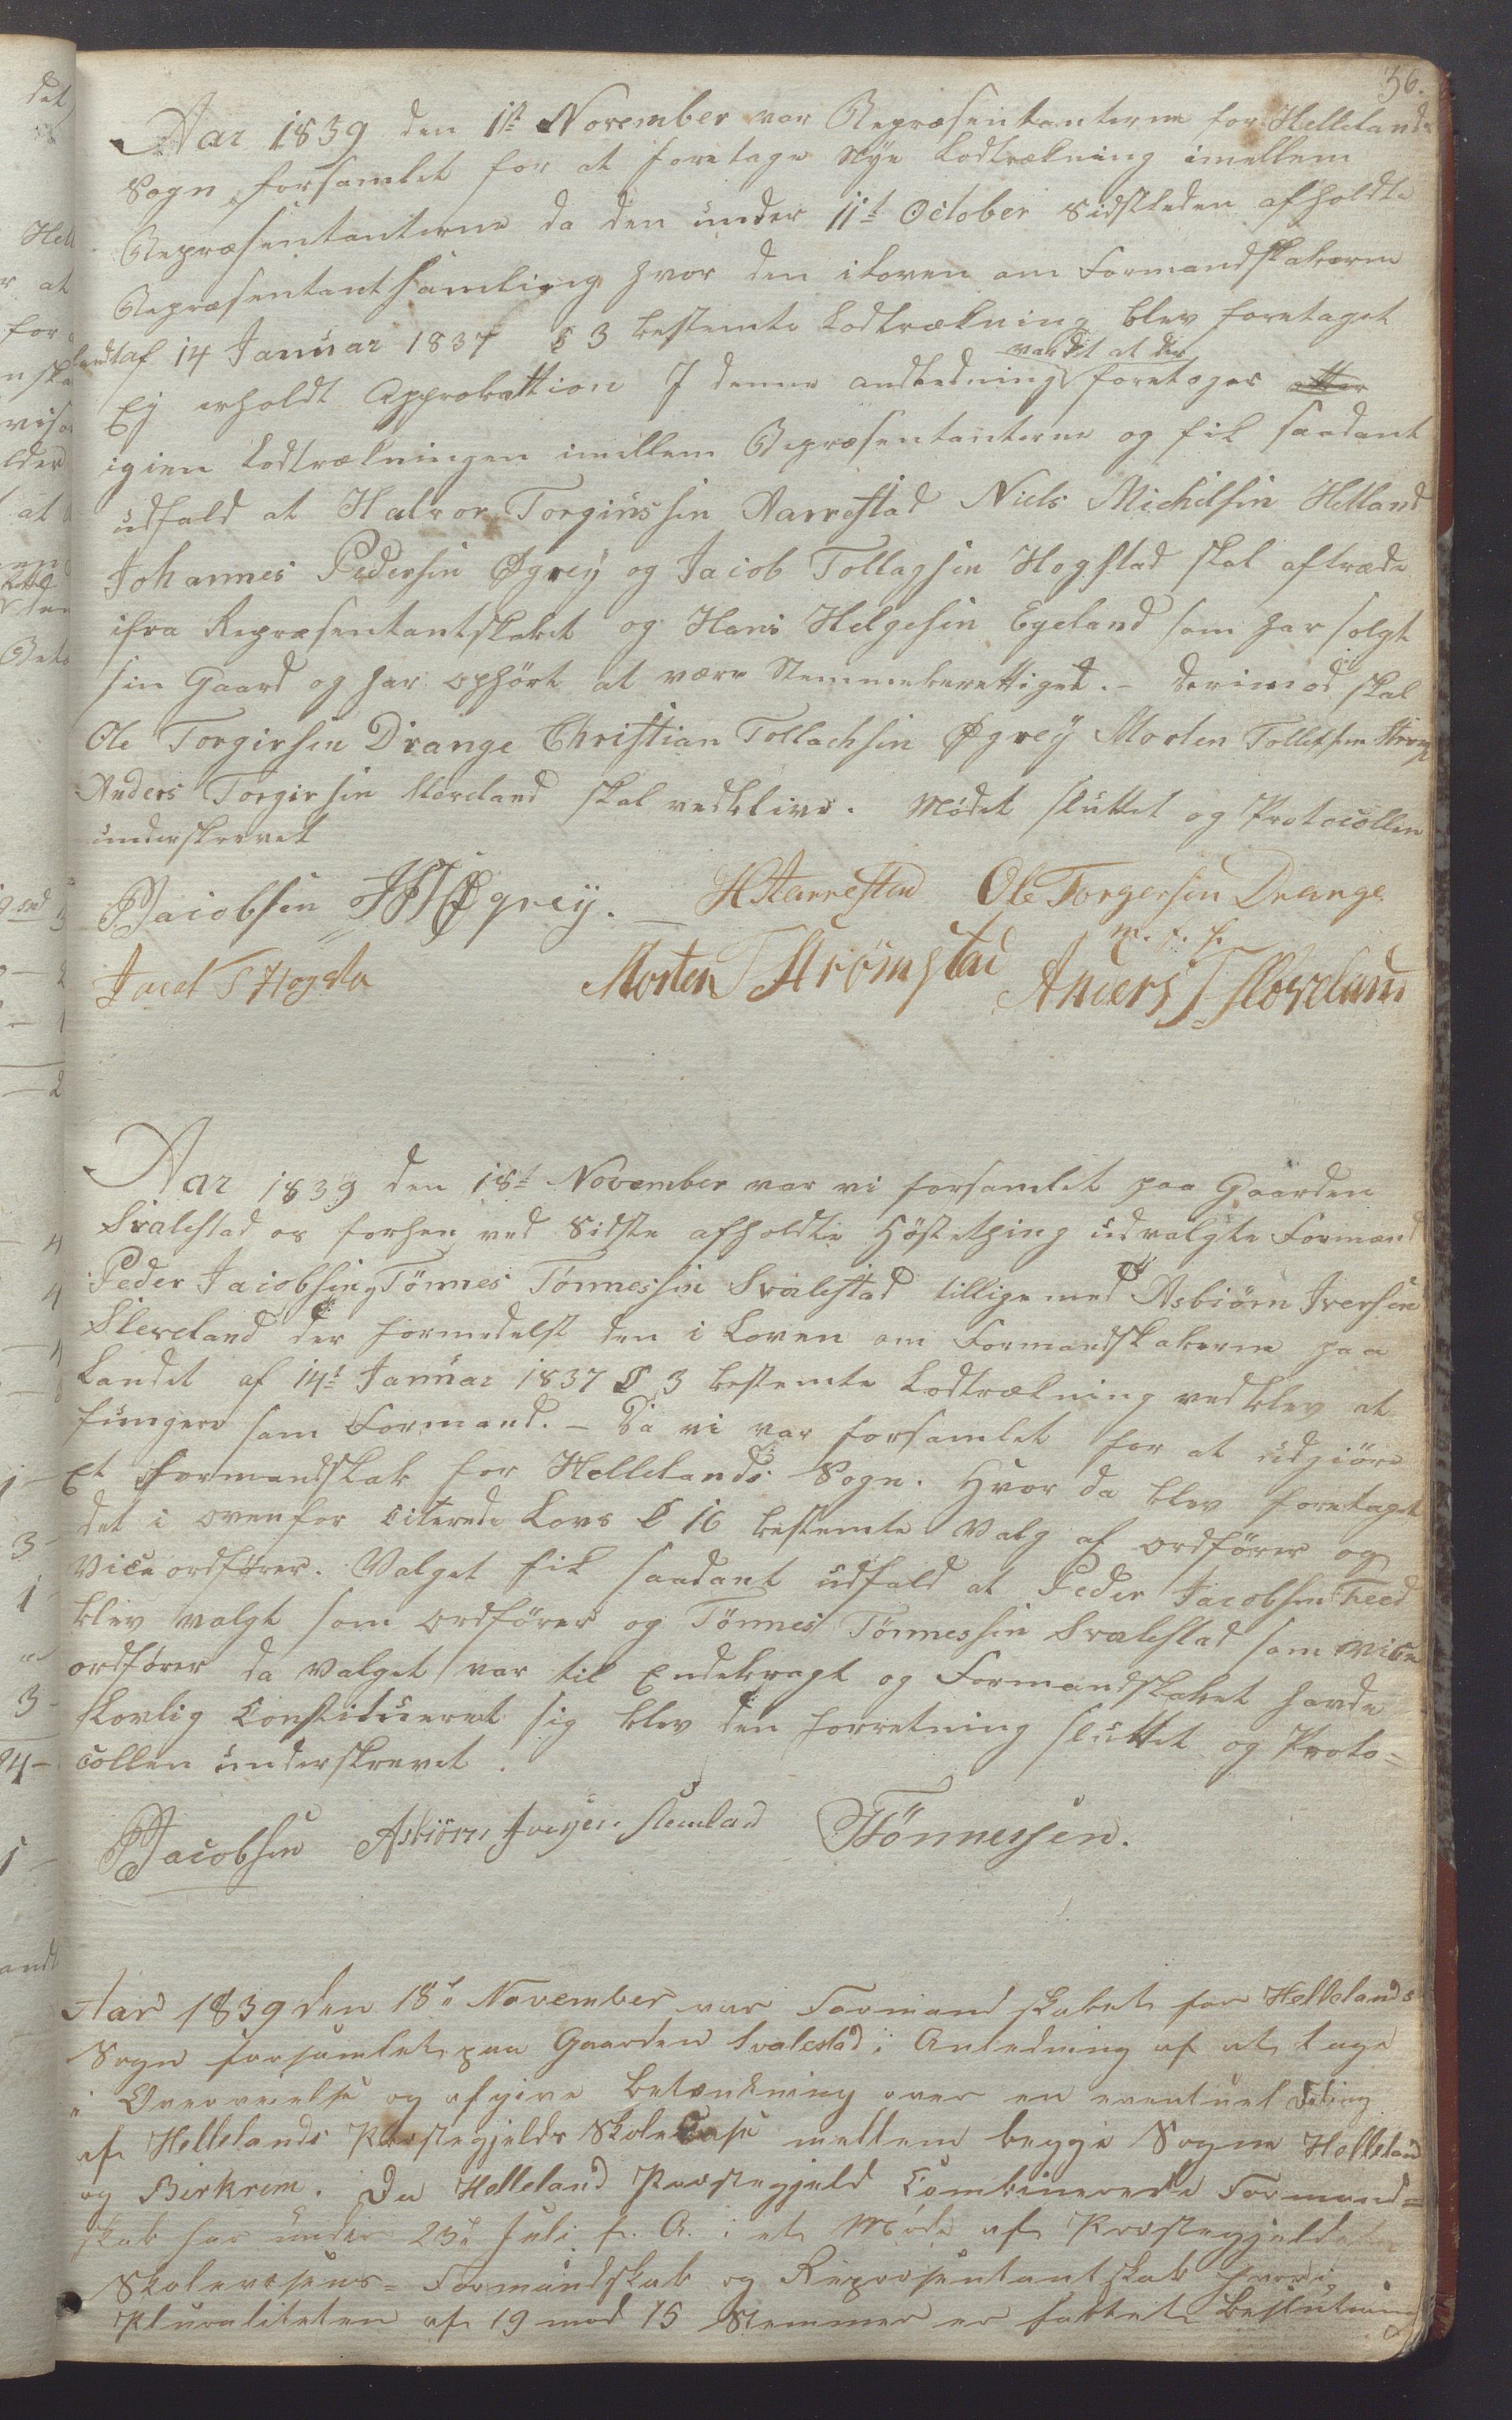 36.
Aar 1839 den 1ste November var Repræsentanterne for Hellelands
Sogn forsamlet for at foretage Nye Lodtrækning imellem
Repræsentanterne da den under 11t October sidstleden afholdte
Repræsentantsamling hvor den i Loven om Formandskaberne
paa Landet af 14 Januar 1837 § 3 bestemte Lodtrækning blev foretaget
Ej erholdt Approbattion I denne andledning vardt at der foretoges etter
igien Lodtrækningen imellem Repræsentanterne og fik saadant
udfald at Halvor Torginssen Aarrestad Niels Michelsen Helland
Johannes Pedersen Øgrey og Jacob Tollagsen Hogstad skal aftræde
ifra Repræsentantskabet og Hans Helgesen Egeland som har solgt
sin Gaard og har ophørt at være Stemmeberettiget. - derimod skal
Ole Torgersen Drange Christian Tollachsen Øgrey Morten Tollefsen
Anders Torgersen skal vedblive. Mødet sluttet og Protocollen
underskrevet
PJacobsen JP Øgrey. HTAarrestad Ole Torgersen Drange
m. f. P.
Jacob T Hogsta Morten T Strømstad Anders T
Aar 1839 den 18t November var vi forsamlet paa Gaarden
Svalestad os forhen ved Sidste afholdte Høstething udvalgte Formænd
Peder Jacobsen Tønnes Tønnessen Svalestad tillige med Asbiørn Iversen
Sleveland der formedelst den i Loven om Formandskaberne paa
Landet af 14t Januar 1837 § 3 bestemte Lodtrækning vedblev at
fungere som Formand. - Da vi var forsamlet for at udgiöre
Et Formandskab for Hellelands Sogn. Hvor da blev foretaget
det i ovenfor citerede Lovs § 16 bestemte Valg af ordfører og
Vice ordfører. Valget fik saadant udfald at Peder Jacobsen Feed
blev valgt som ordfører og Tønnes Tønnessen Svalestad som vice
ordfører da Valget var til Endebragt og Formandskabet havde
Lovlig Constitueret sig blev den forretning sluttet og Proto=
collen underskrevet.
PJacobsen Asbiørn Iversen TTønnessen.
Aar 1839 den 18de November var Formandskabet for Hellelands
Sogn forsamlet paa Gaarden Svalestad i Anledning af at tage
i Overveielse og afgive Betænkning over en eventuel Deling
af Hellelands Præstegjelds Skolecasse mellem begge Sogne Helleland
og Birkrem. Da Helleland Præstegjeld Combinerede Formand=
skab har under 23de Juli f. A. i et Møde af Præstegjeldets
Skolevæsens= Formandskab og Repræsentantskab hvori
Pluraliteten af 19 mod 15 Stemmer er fattet Beslutning